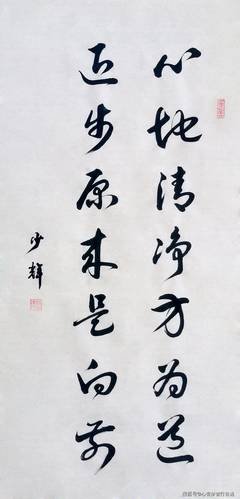 心地清净方为道
退步原来是向前
少辉